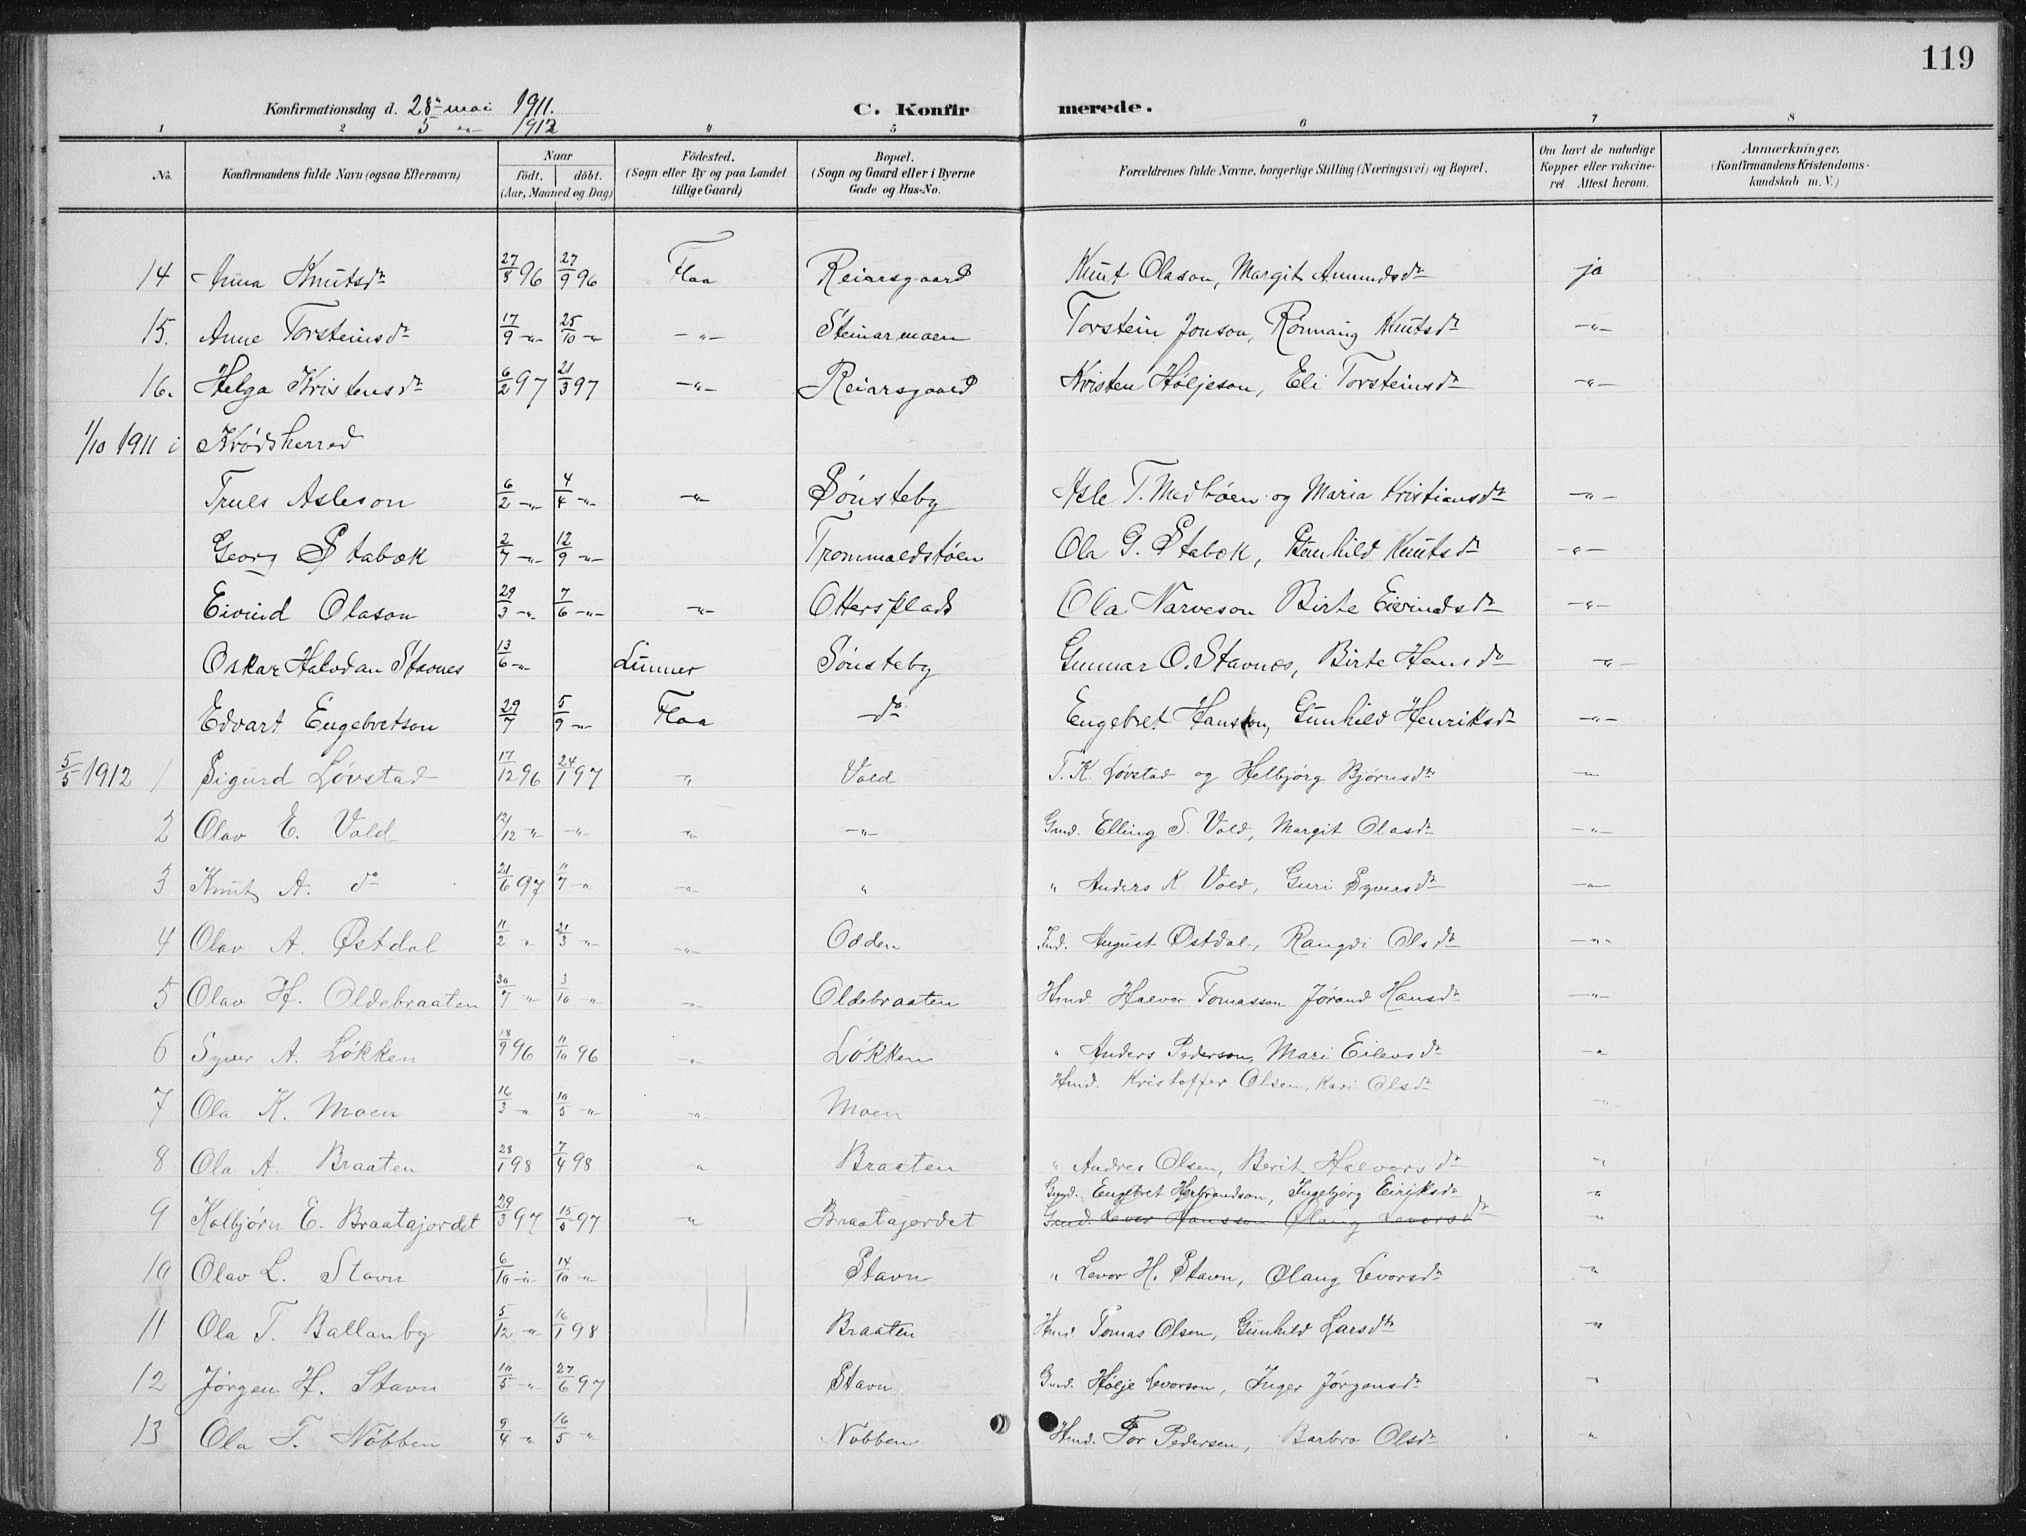 119
Konfirmationsdag d. 28de mai 1911.
5 -"- 1912
C. Konfirmerede.
1 2 3 4 5 6 7 8
No. Konfirmandens fulde Navn (ogsaa Efternavn) Naar født. døbt. (Aar, Maaned og Dag) Fødested. (Sogn eller By og paa Landet tillige Gaard) Bopæl. (Sogn og Gaard eller i Byerne Gade og Hus-No. Forældrenes fulde Navne, borgerlige Stilling (Næringsvei) og Bopæl. Om havt de naturlige Kopper eller vakcineret. Attest herom. Anmærkninger. (Konfirmandens Kristendomskundskab m. V.)
14 Anna Knutsdr 27/8 96 27/9 96 Flaa Reiarsgaard Knut Olason, Margit Amundsdr ja
15. Anne Torsteinsdr 17/9 -"- 25/10 -"- -"- Steinarmoen Torstein Jonson, Rønnaug Knutsdr -"-
16. Helga Kristensdr 6/2 97 21/3 97 -"- Reiarsgaard Kristen Høljeson, Eli Torsteinsdr -"-
1/10 1911 i Krødsherred
Truls Asleson 6/2 -"- 4/4 -"- -"- Sønsteby Asle T. Medbøen og Maria Kristiansdr -"-
Georg Stabæk 2/7 -"- 12/9 -"- Trommaldstøen Ola G. Stabæk, Gunhild Knutsdr -"-
Eivind Olason 29/3 -"- 7/6 -"- -"- Ottersplads Ola Narveson Birte Eivindsdr -"-
Oskar Halvdan Stavnes 13/6 -"- Lunner Sønsteby Gunnar O. Stavnes, Birte Hansdr -"-
Edvart Engebretson 29/7 5/9 -"- Flaa -do Engebret Hanson, Gunhild Henriksdr -"-
5/5 1912 1 Sigurd Løvstad 17/12 96 24/1 97 -"- Vold T. K. Løvstad og Helbjørg Bjørnsdr -"-
2 Olav E. Vold 12/12 -"- -"- -"- -"- Gmd. Elling S. Vold, Margit Olasdr -"-
3 Knut A. do 21/6 97 11/7 -"- -"- " " Anders K. Vold, Guri Syversdr -"-
4 Olav A. Østdal 11/2 " 21/3 -"- -"- Odden Ind. August Østdal, Rangdi Olsdr -"-
5 Olav H. Oldebraaten 30/7 -"- 3/10 -"- -"- Oldebraaten Hmd. Halvor Tomasson Jørand Hansdr -"-
6 Syver A. Løkken 18/9 96 11/10 96 -"- Løkken " Anders Pederson, Mari Eilevsdr -"-
7 Ola K. Moen 16/3 -"- 10/5 -"- -"- Moen Hmd. Kristoffer Olsen, Kari Olsdr -"-
8 Ola A. Braaten 28/1 98 7/4 98 " Braaten " Andres Olsen, Berit Halvorsdr -"-
9 Kolbjørn E. Braatajordet 29/3 97 15/5 97 -"- Braatajordet Gmd. Engebret Herbrandson, Ingebjørg Eiriksdr "
Gmd. Levor Hansson Olaug Levorsdr "
10 Olav L. Stavn 6/10 -"- 14/10 -"- Stavn " Levor H. Stavn, Olaug Levorsdr -"-
11 Ola T. Ballanby 5/12 -"- 16/1 98 Braaten Hmd Tomas Olsen, Gunhild Larsdtr "
12 Jørgen H. Stavn 10/5 -"- 27/6 97 Stavn Gmd. Hølje Levorson, Inger Jørgensdr "
13 Ola T. Nøbben 9/4 " 16/5 -"- Nøbben Hmd. Tor Pedersen, Barbro Olsdr "